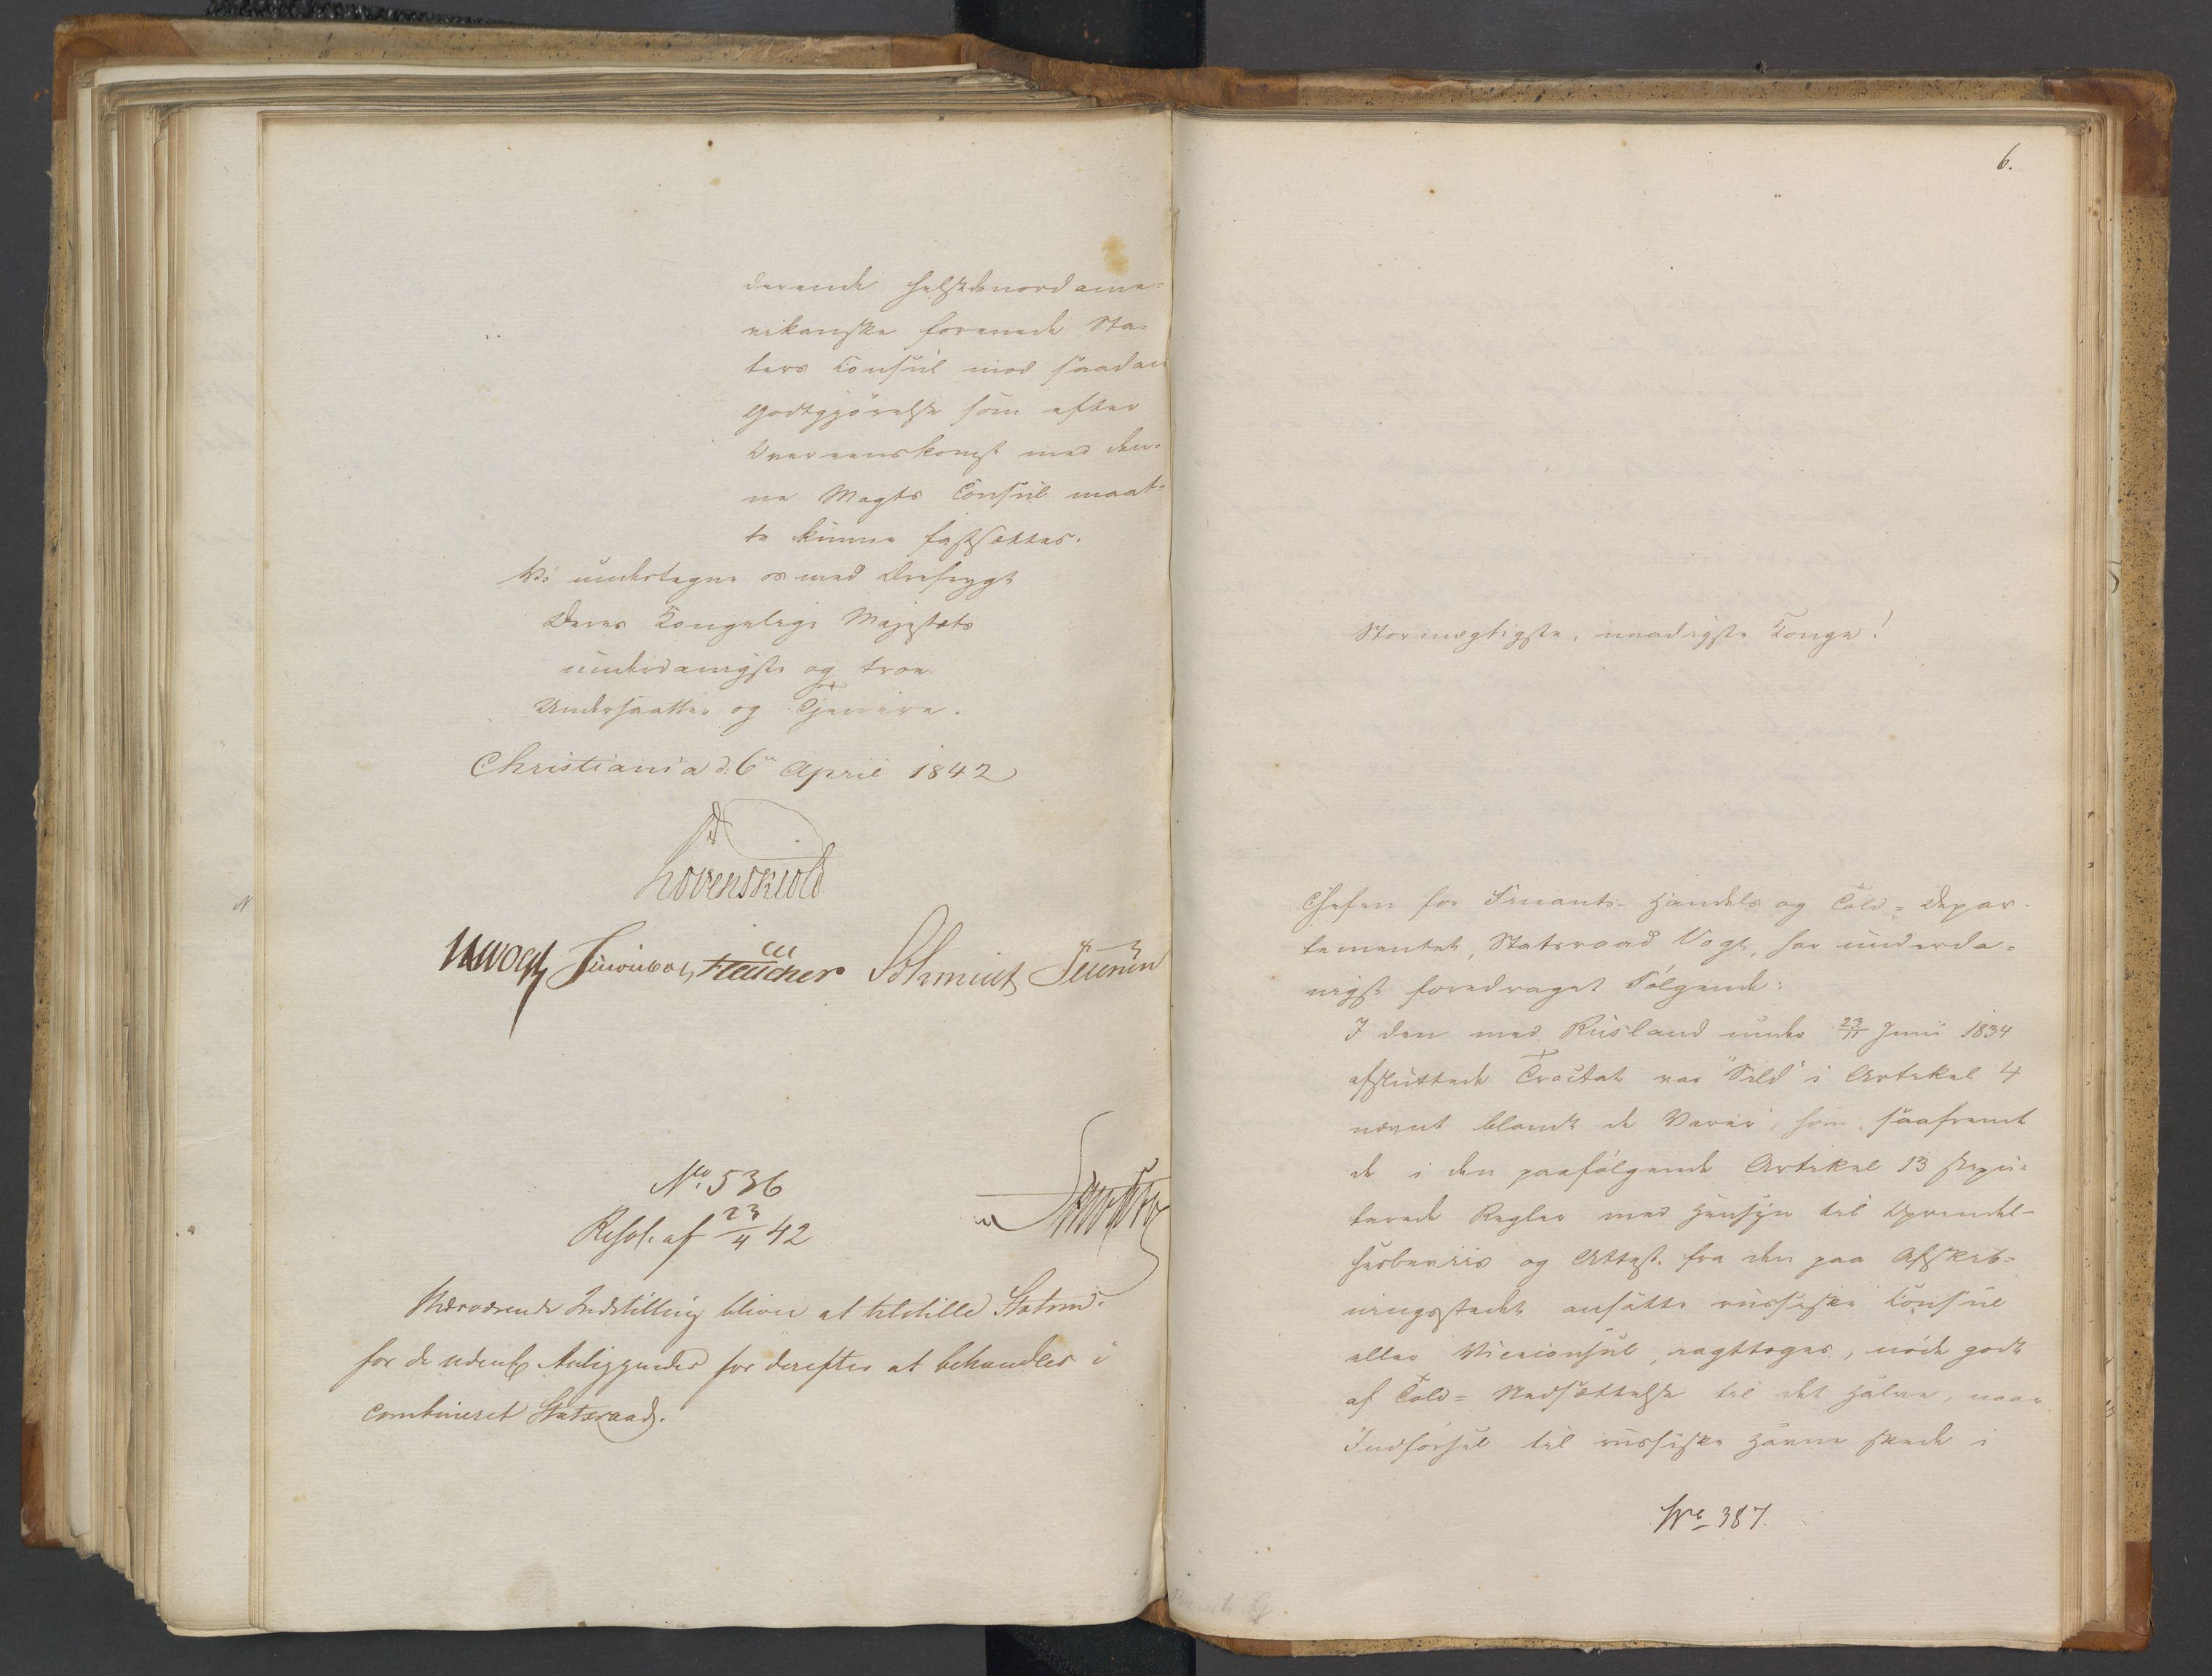 derende helst de nordame=
rikanske forenede Sta=
ters Consul mod saadan
Godtgjörelse som efter
Overeenskomst med den=
ne Magts Consul maat=
te kunne fastsættes.
Vi undertegne os med Ærefrygt
Deres Kongelige Majestæts
underdanigste og troe
Undersaatter og Tjenere.
Christiania d. 6te April 1842
Løvenskiold
Vogt
Schmidt
No. 536
Resol. af 23/4 42
Nærværende Indstilling bliver at tilstille Statsm:
for de udenl. Anliggender for derefter at behandles i
combineret Statsraad.
6.
Stormægtigste, naadigste Konge!
Chefen for Finants- Handels og Told= Depar-
tementet, Statsraad Vogt, har underda=
nigst foredraget Fölgende:
I den med Rusland under 23/11 Juni 1834
afsluttede Tractat var "Sild" i Artikel 4
nævnt blandt de Varer, som, saafremt
de i den paafölgende Artikel 13 stipu=
lerede Regler med Hensyn til Oprindel-
sesbeviis og Attest fra den paa Afskib=
ningsstedet ansatte russiske Consul
eller Viceconsul, iagttoges, nöde godt
af Told= Nedsættelse til det Halve, naar
Indförsel til russiske Havne skede i
No 387.